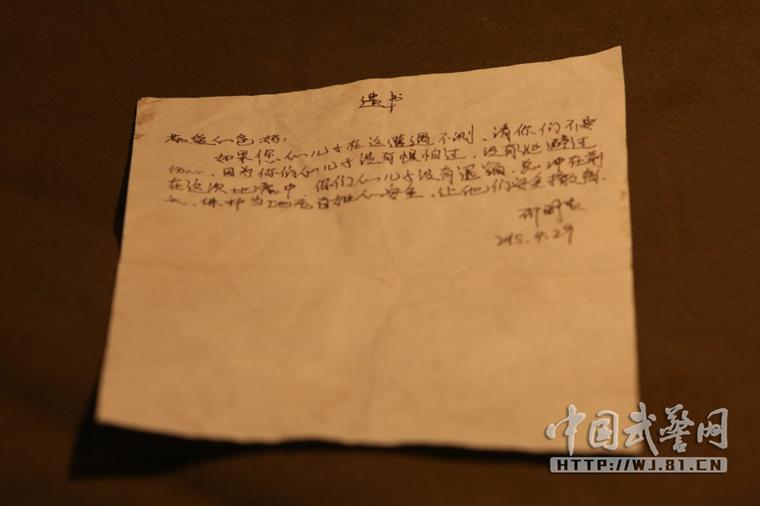 遗书
爸爸妈们好：
如果您们儿子在这遭遇不测，请你们不要
伤心，因为你们儿子没有惧怕过，没有逃避过
在这次地震中，你们儿子没有退缩，冲在前
保护当地老百姓们安全，让他们安全撤离
2015.4.29
中国武警网
HTTP://WJ.81.CN